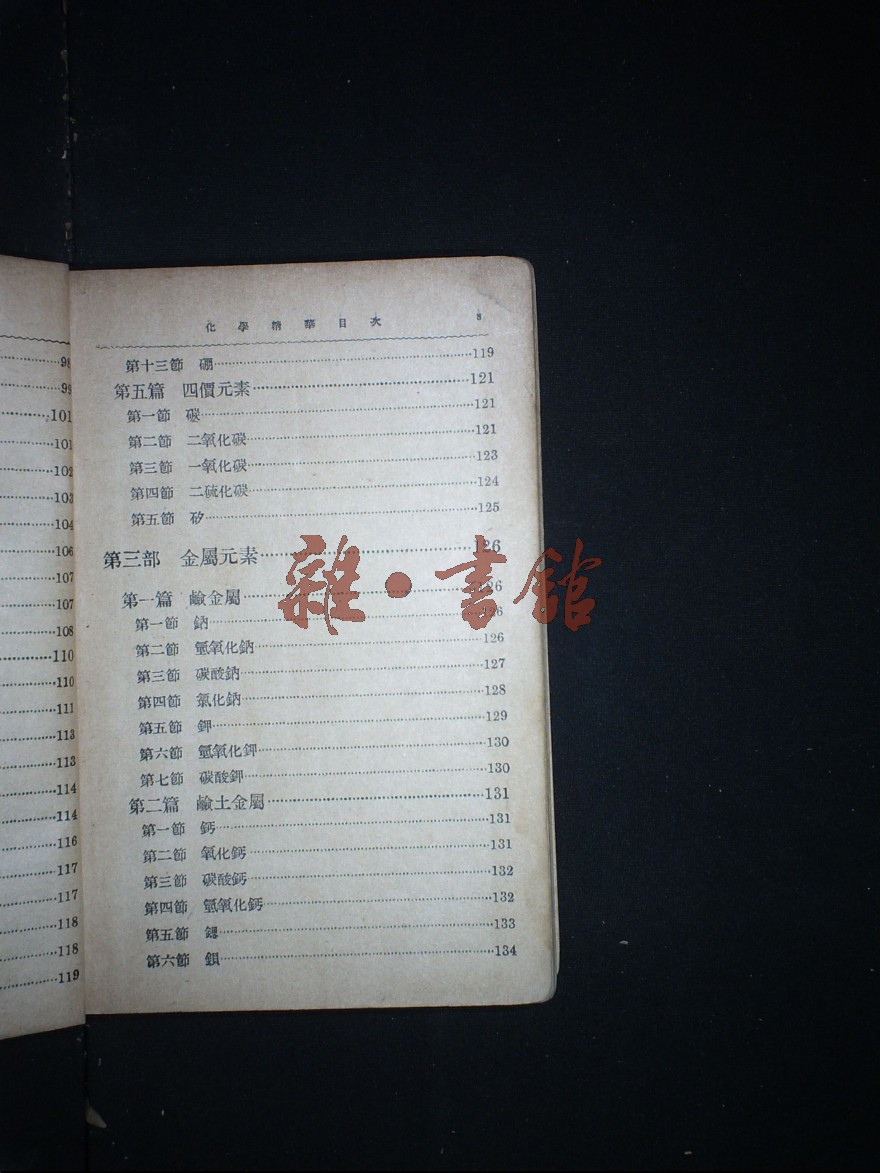 98
99
101
101
102
103
104
106
107
107
108
110
110
111
113
113
114
114
116
117
117
118
118
119
化學精華目次 8
第十三節 硼 119
第五篇 四價元素 121
第一節 碳 121
第二節 二氧化碳 121
第三節 一氧化碳 123
第四節 二硫化碳 124
第五節 矽 125
第三部 金屬元素 126
第一篇 鹼金屬 126
第一節 鈉 126
第二節 氫氧化鈉 126
第三節 碳酸鈉 127
第四節 氯化鈉 128
第五節 鉀 129
第六節 氫氧化鉀 130
第七節 碳酸鉀 130
第二篇 鹼土金屬 131
第一節 鈣 131
第二節 氧化鈣 131
第三節 碳酸鈣 132
第四節 氫氧化鈣 132
第五節 鍶 133
第六節 鋇 134
雜·書館